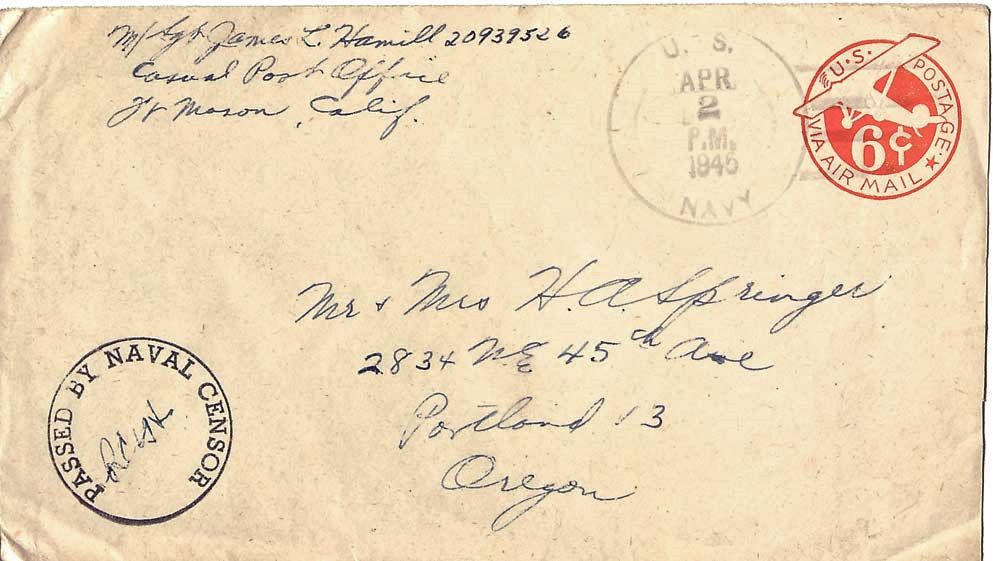 M/Sgt James L. Hamill 20939526
Casual Post Office
Ft Mason, Calif.
U. S.
APR
2
P.M.
1945
NAVY
U.S. POSTAGE
6¢
VIA AIR MAIL
Mr & Mrs H. A. Springer
2834 N.E 45th Ave
Portland 13
Oregon
PASSED BY NAVAL CENSOR